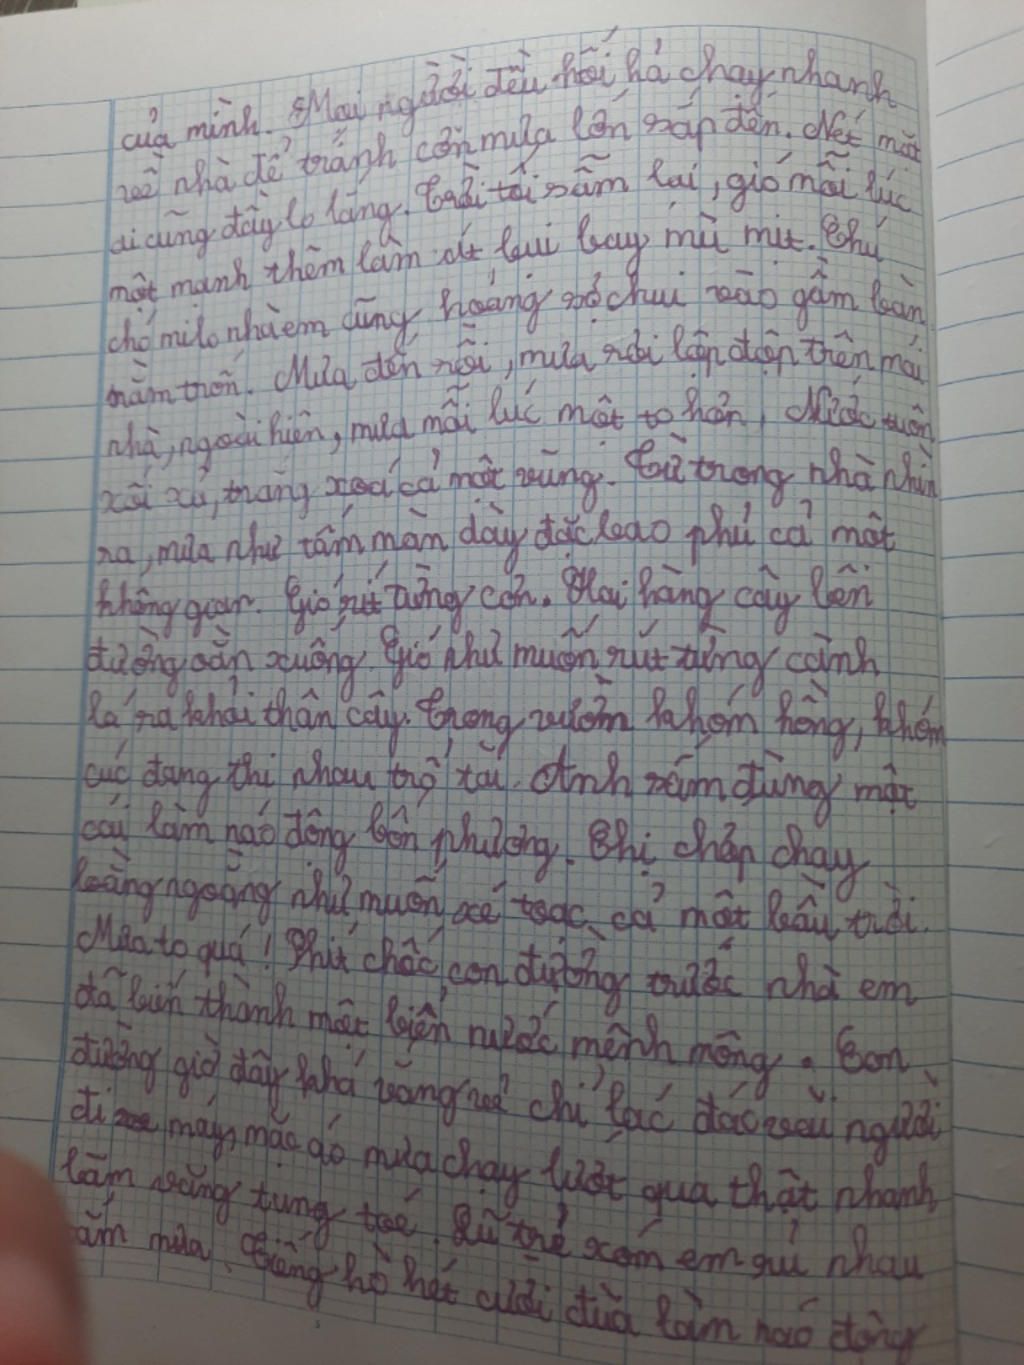 của mình. Mọi người đều hối hả chạy nhanh
về nhà để tránh cơn mưa lớn sắp đến. Nét mặt
ai cũng đầy lo lắng. Trời tối sầm lại, gió mỗi lúc
một mạnh thêm làm đất bụi bay mù mịt. Chú
chó milo nhà em cũng hoảng sợ chui vào gầm bàn
nằm trốn. Mưa đến rồi, mưa rơi lộp độp trên mái
nhà, ngoài hiên, mưa mỗi lúc một to hơn, Nước tuôn
xối xả, trắng xoá cả một vùng. Từ trong nhà nhìn
ra, mưa như tấm màn dày đặc bao phủ cả một
không gian. Gió rít từng cơn. Hai hàng cây bên
đường oằn xuống. Gió như muốn rút từng cành
lá ra khỏi thân cây. Trong vườn khóm hồng, khóm
cúc đang thi nhau trổ tài. Anh sấm đùng một
cái làm náo động bốn phương. Chị chớp chạy
loằng ngoằng như muốn xé toạc cả một bầu trời.
Mưa to quá! Phút chốc, con đường trước nhà em
đã biến thành một biển nước mênh mông. Con
đường giờ đây khá vắng vẻ chỉ lác đác vài người
đi máy, mặc áo mưa chạy lướt qua thật nhanh
làm văng tung toé. Lũ trẻ xóm em rủ nhau
tắm mưa. Tiếng hò hét cười đùa làm náo động